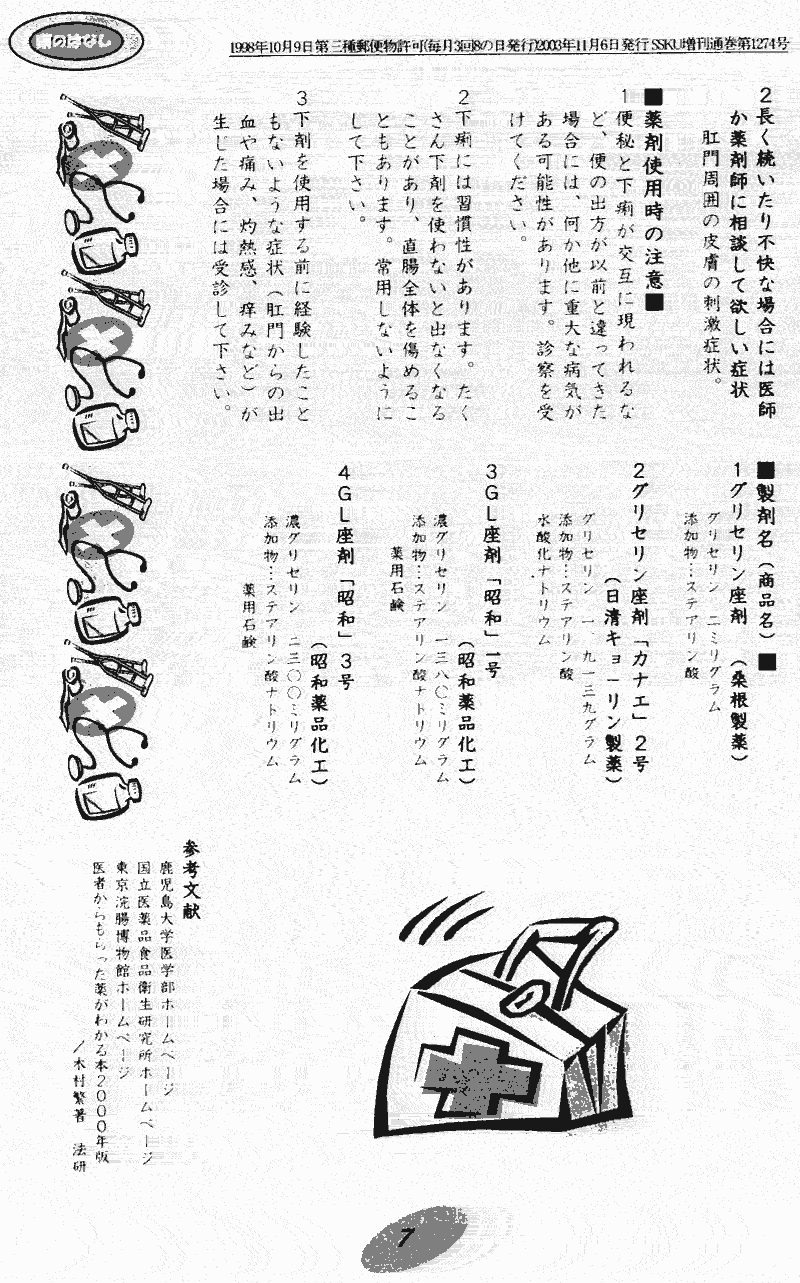 腸のはなし
1998年10月9日第三種郵便物許可(毎月3回8の日発行)2003年11月6日発行 SSKU増刊通巻第1274号
2長く続いたり不快な場合には医師
か薬剤師に相談して欲しい症状
肛門周囲の皮膚の刺激症状。
■薬剤使用時の注意■
1便秘と下痢が交互に現われるな
ど、便の出方が以前と違ってきた
場合には、何か他に重大な病気が
ある可能性があります。診察を受
けてください。
2下痢には習慣性があります。たく
さん下剤を使わないと出なくなる
ことがあり、直腸全体を傷めるこ
ともあります。常用しないように
して下さい。
3下剤を使用する前に経験したこと
もないような症状（肛門からの出
血や痛み、灼熱感、痒みなど）が
生した場合には受診して下さい。
■製剤名（商品名）■
1グリセリン座剤　（桑根製薬）
グリセリン　二ミリグラム
添加物…ステアリン酸
2グリセリン座剤「カナエ」2号
（日清キョーリン製薬）
グリセリン　一．九一三九グラム
添加物…ステアリン酸
水酸化ナトリウム
3GL座剤「昭和」一号
（昭和薬品化工）
濃グリセリン　一三八〇ミリグラム
添加物…ステアリン酸ナトリウム
薬用石鹸
4GL座剤「昭和」3号
（昭和薬品化工）
濃グリセリン　二三〇〇ミリグラム
添加物…ステアリン酸ナトリウム
薬用石鹸
参考文献
鹿児島大学医学部ホームページ
国立医薬品食品衛生研究所ホームページ
東京浣腸博物館ホームページ
医者からもらった薬がわかる本2000年版
／木村繁著　法研
7